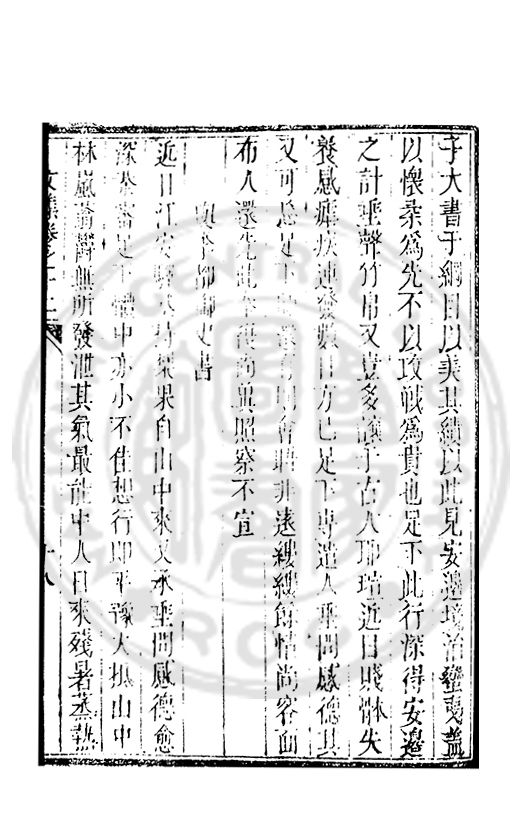 子大書于綱目以美其績以此見安邊境治蠻夷蓋
以懷柔為先不以攻戰為貴也足下此行深得安邊
之計垂聲竹帛又豈多讓于古人耶瑄近日賤體失
養感瘴疾連發數日方已足下專遣人垂問感德其
又可忘足下會聘非遠縷縷餘情尚容面
布人還先此奉復尚冀照察不宣
與李都御史書
近日江安驛丞馬梁果自山中來又承垂問感德愈
深足下體中亦小不佳想行即平豫大抵山中
林嵐蓊鬱無所發泄其氣最能中人日來殘暑蒸熱
文集卷之十二
十八